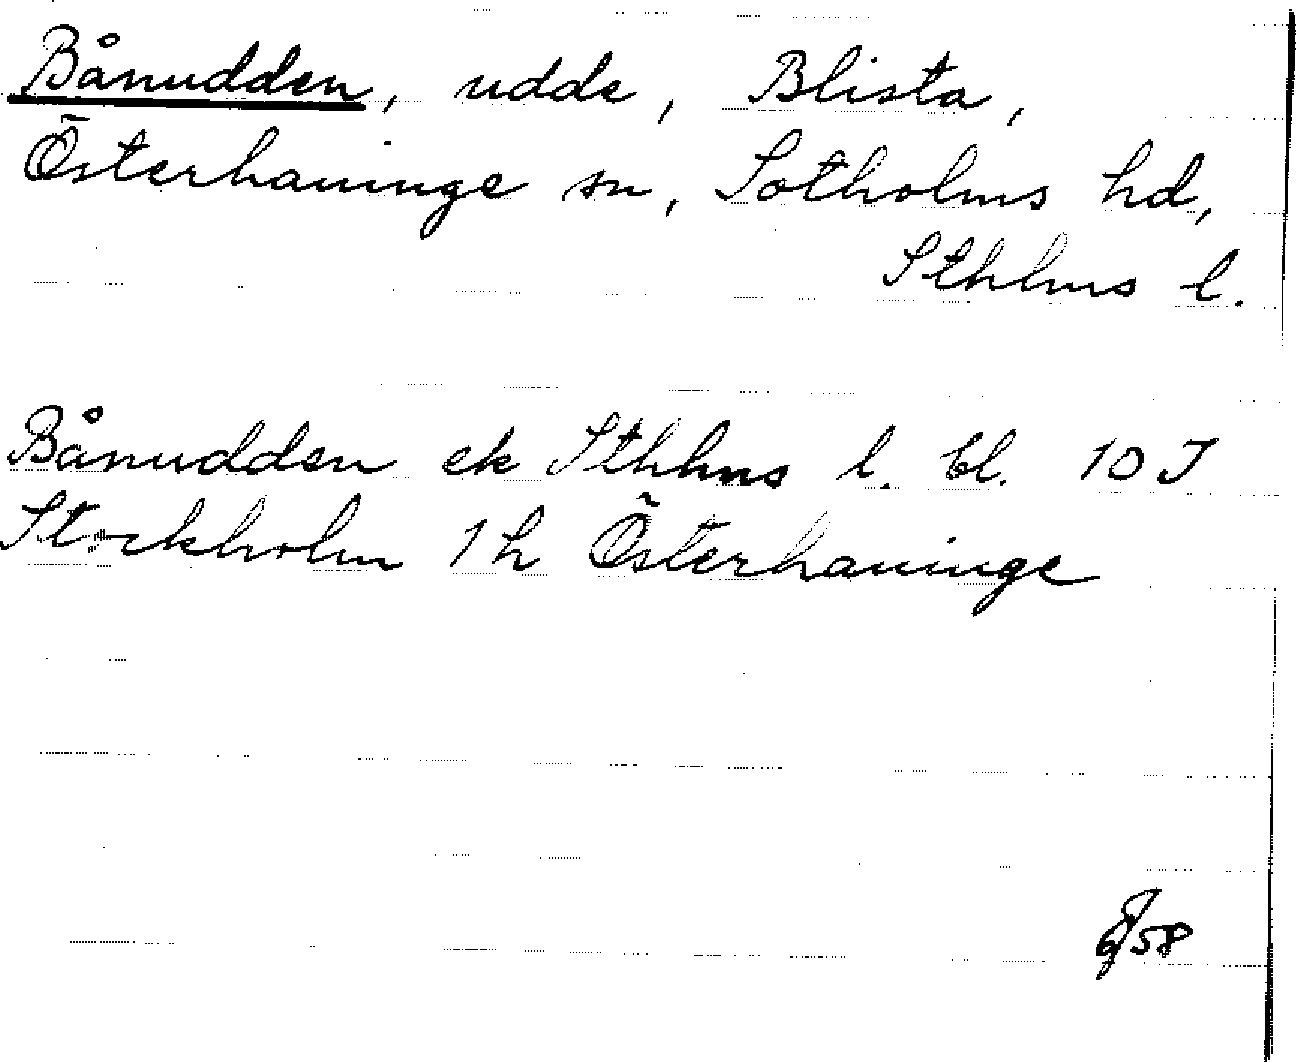 Bånudden, udde, Blista,
Österhaninge sn, Sotholms hd,
Sthlms l.
Bånudden ek Sthlms l. bl. 10 I
Stockholm 1 h Österhaninge
58